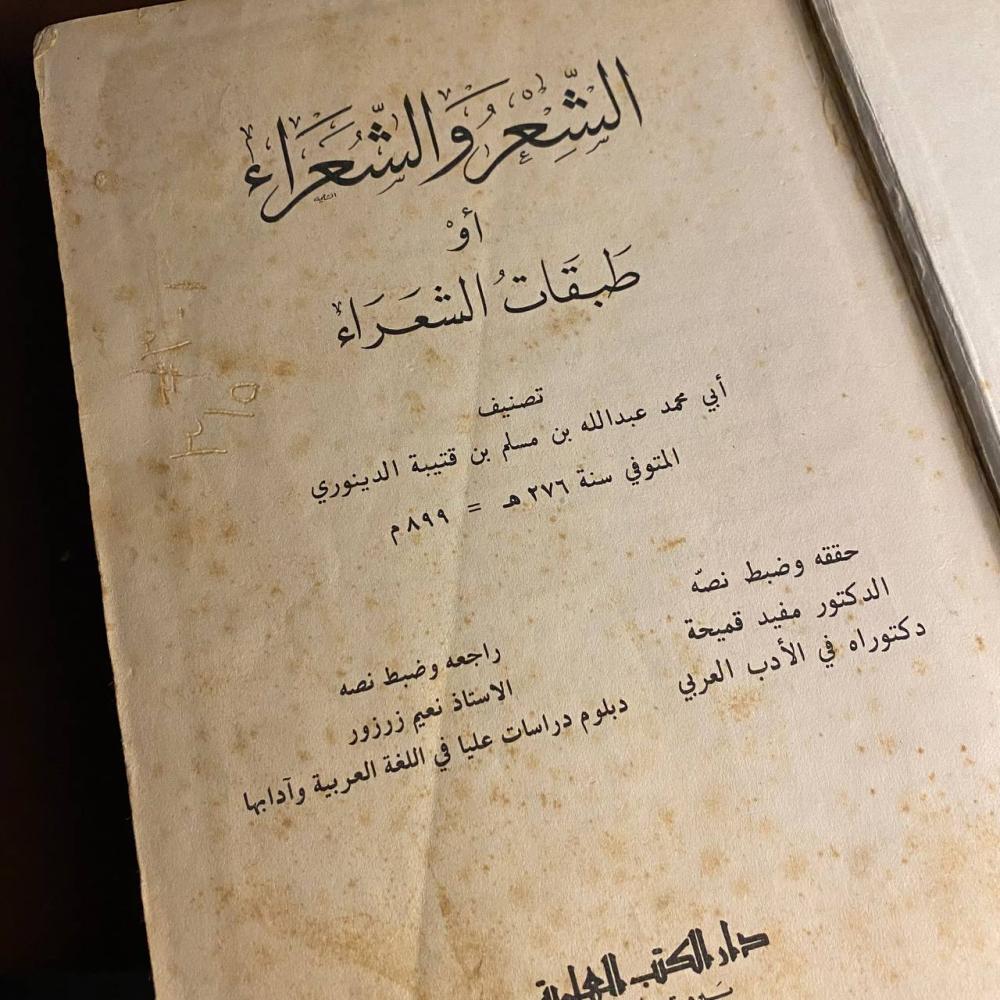 الشِّعْرُ وَالشُّعَرَاءُ
أَوْ
طَبَقَاتُ الشعَرَاءُ
تصنيف
أبي محمد عبدالله بن مسلم بن قتيبة الدينوري
المتوفي سنة ٢٧٦ هـ = ٨٩٩ م
حققه وضبط نصّه
الدكتور مفيد قميحة
دكتوراه في الأدب العربي
راجعه وضبط نصه
الاستاذ نعيم زرزور
دبلوم دراسات عليا في اللغة العربية وآدابها
دار الكتب العلمية